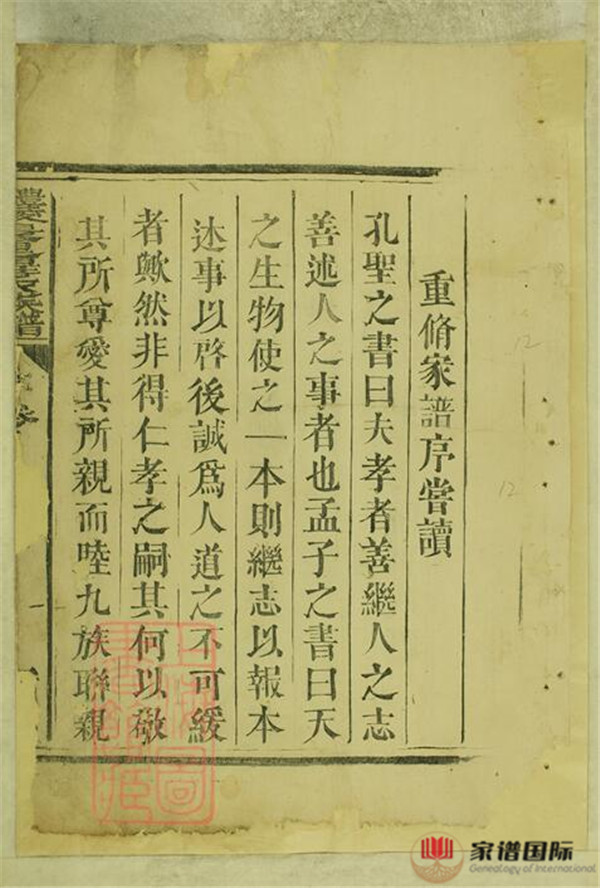 重脩家譜序嘗讀
孔聖之書曰夫孝者善繼人之志
善述人之事者也孟子之書曰天
之生物使之一本則繼志以報本
述事以啓後誠爲人道之不可緩
者歟然非得仁孝之嗣其何以敬
其所尊愛其所親而睦九族聯親
族譜
12
12
家谱国际
Genealogy of International